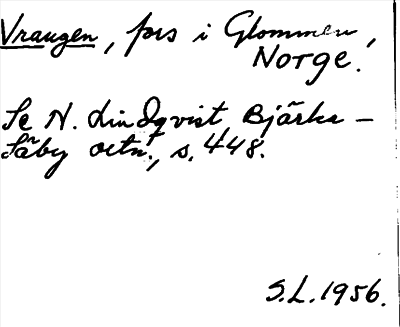 Vraugen, fors i Glommen,
Norge.
Se N. Lindqvist Bjärka -
Säby ortn., s. 448.
S.L. 1956.